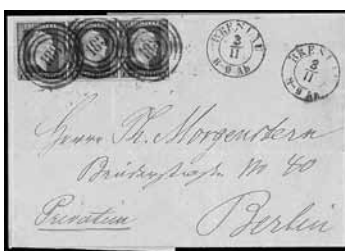 BRESLAU
2/11
8-9 Ab.
BRESLAU
2/11
8-9 Ab.
Herrn Th. Morgenstern
Brüderstraße № 40
Privatim
Berlin